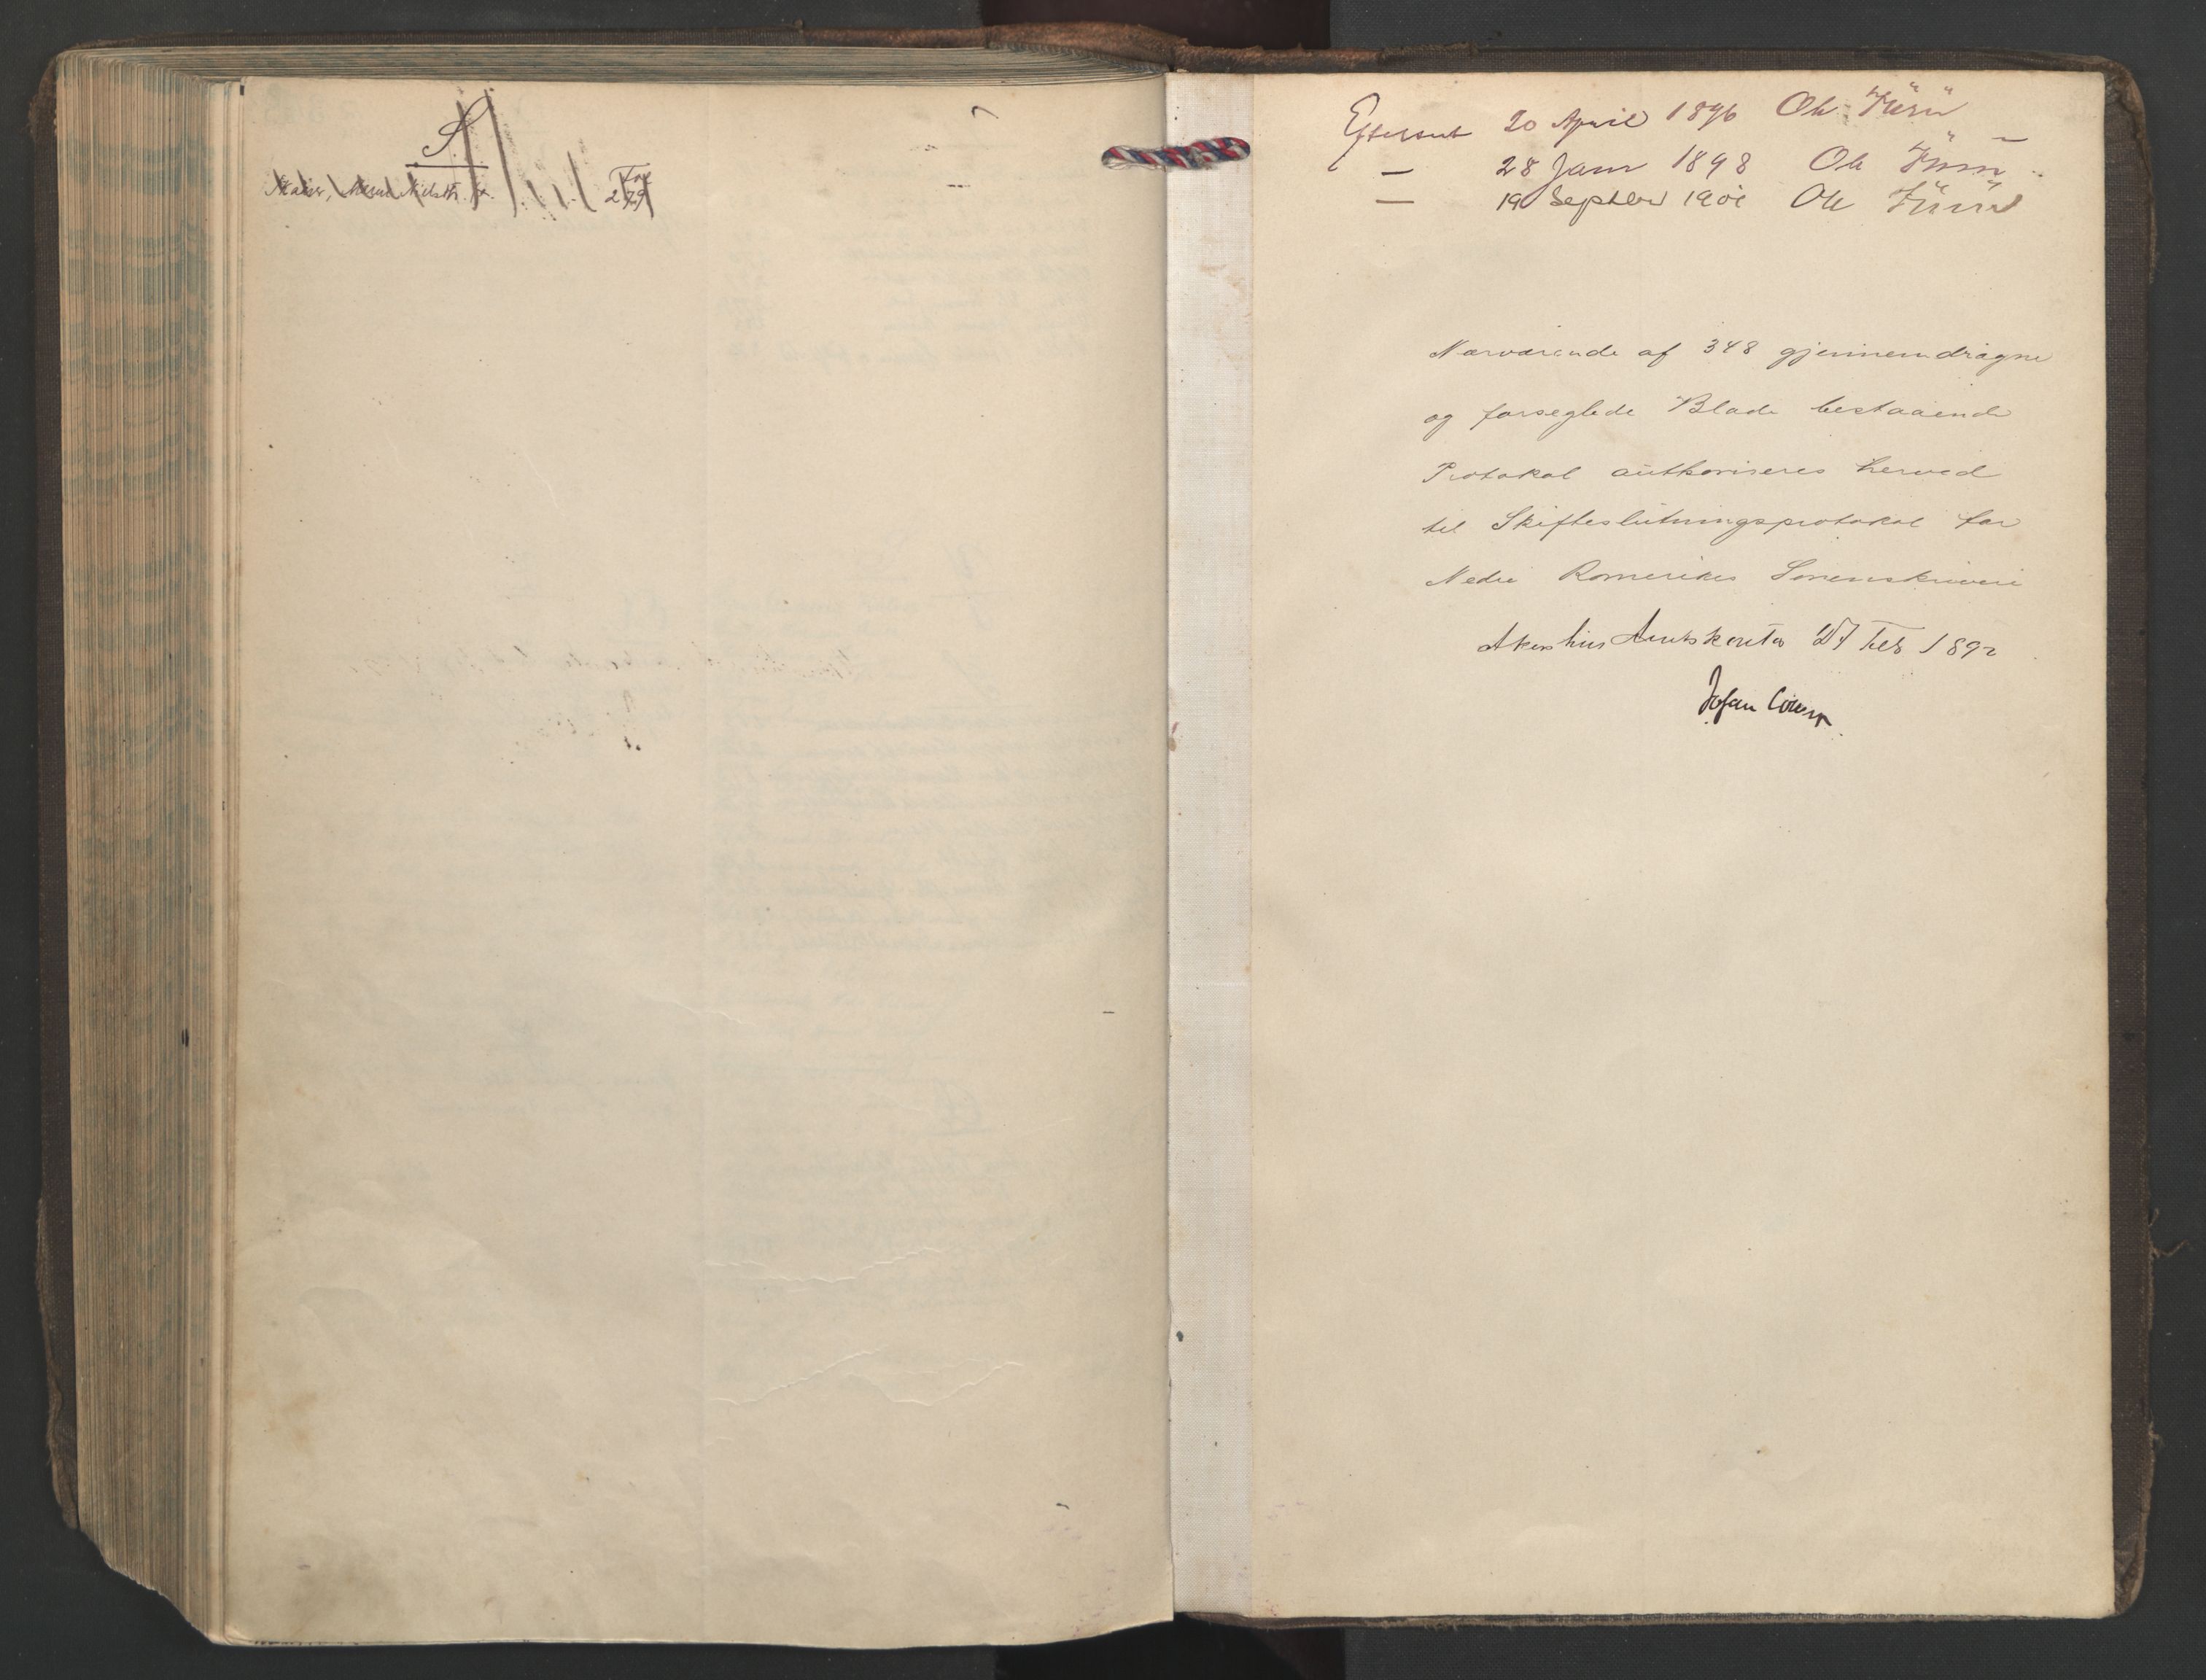 S.
Fol
279
Efterseet 20 April 1896 Ole
— 28 Janr 1898 Ole
— 19 Septbr 1901 Ole
Nærværende af 348 gjennemdragne
og forseglede Blade bestaaende
Protokol authoriseres herved
til Skifteslutningsprotokol for
Nedre Romerikes Sorenskriveri
Akershus Amtskontor 27 Feb 1892
Johan